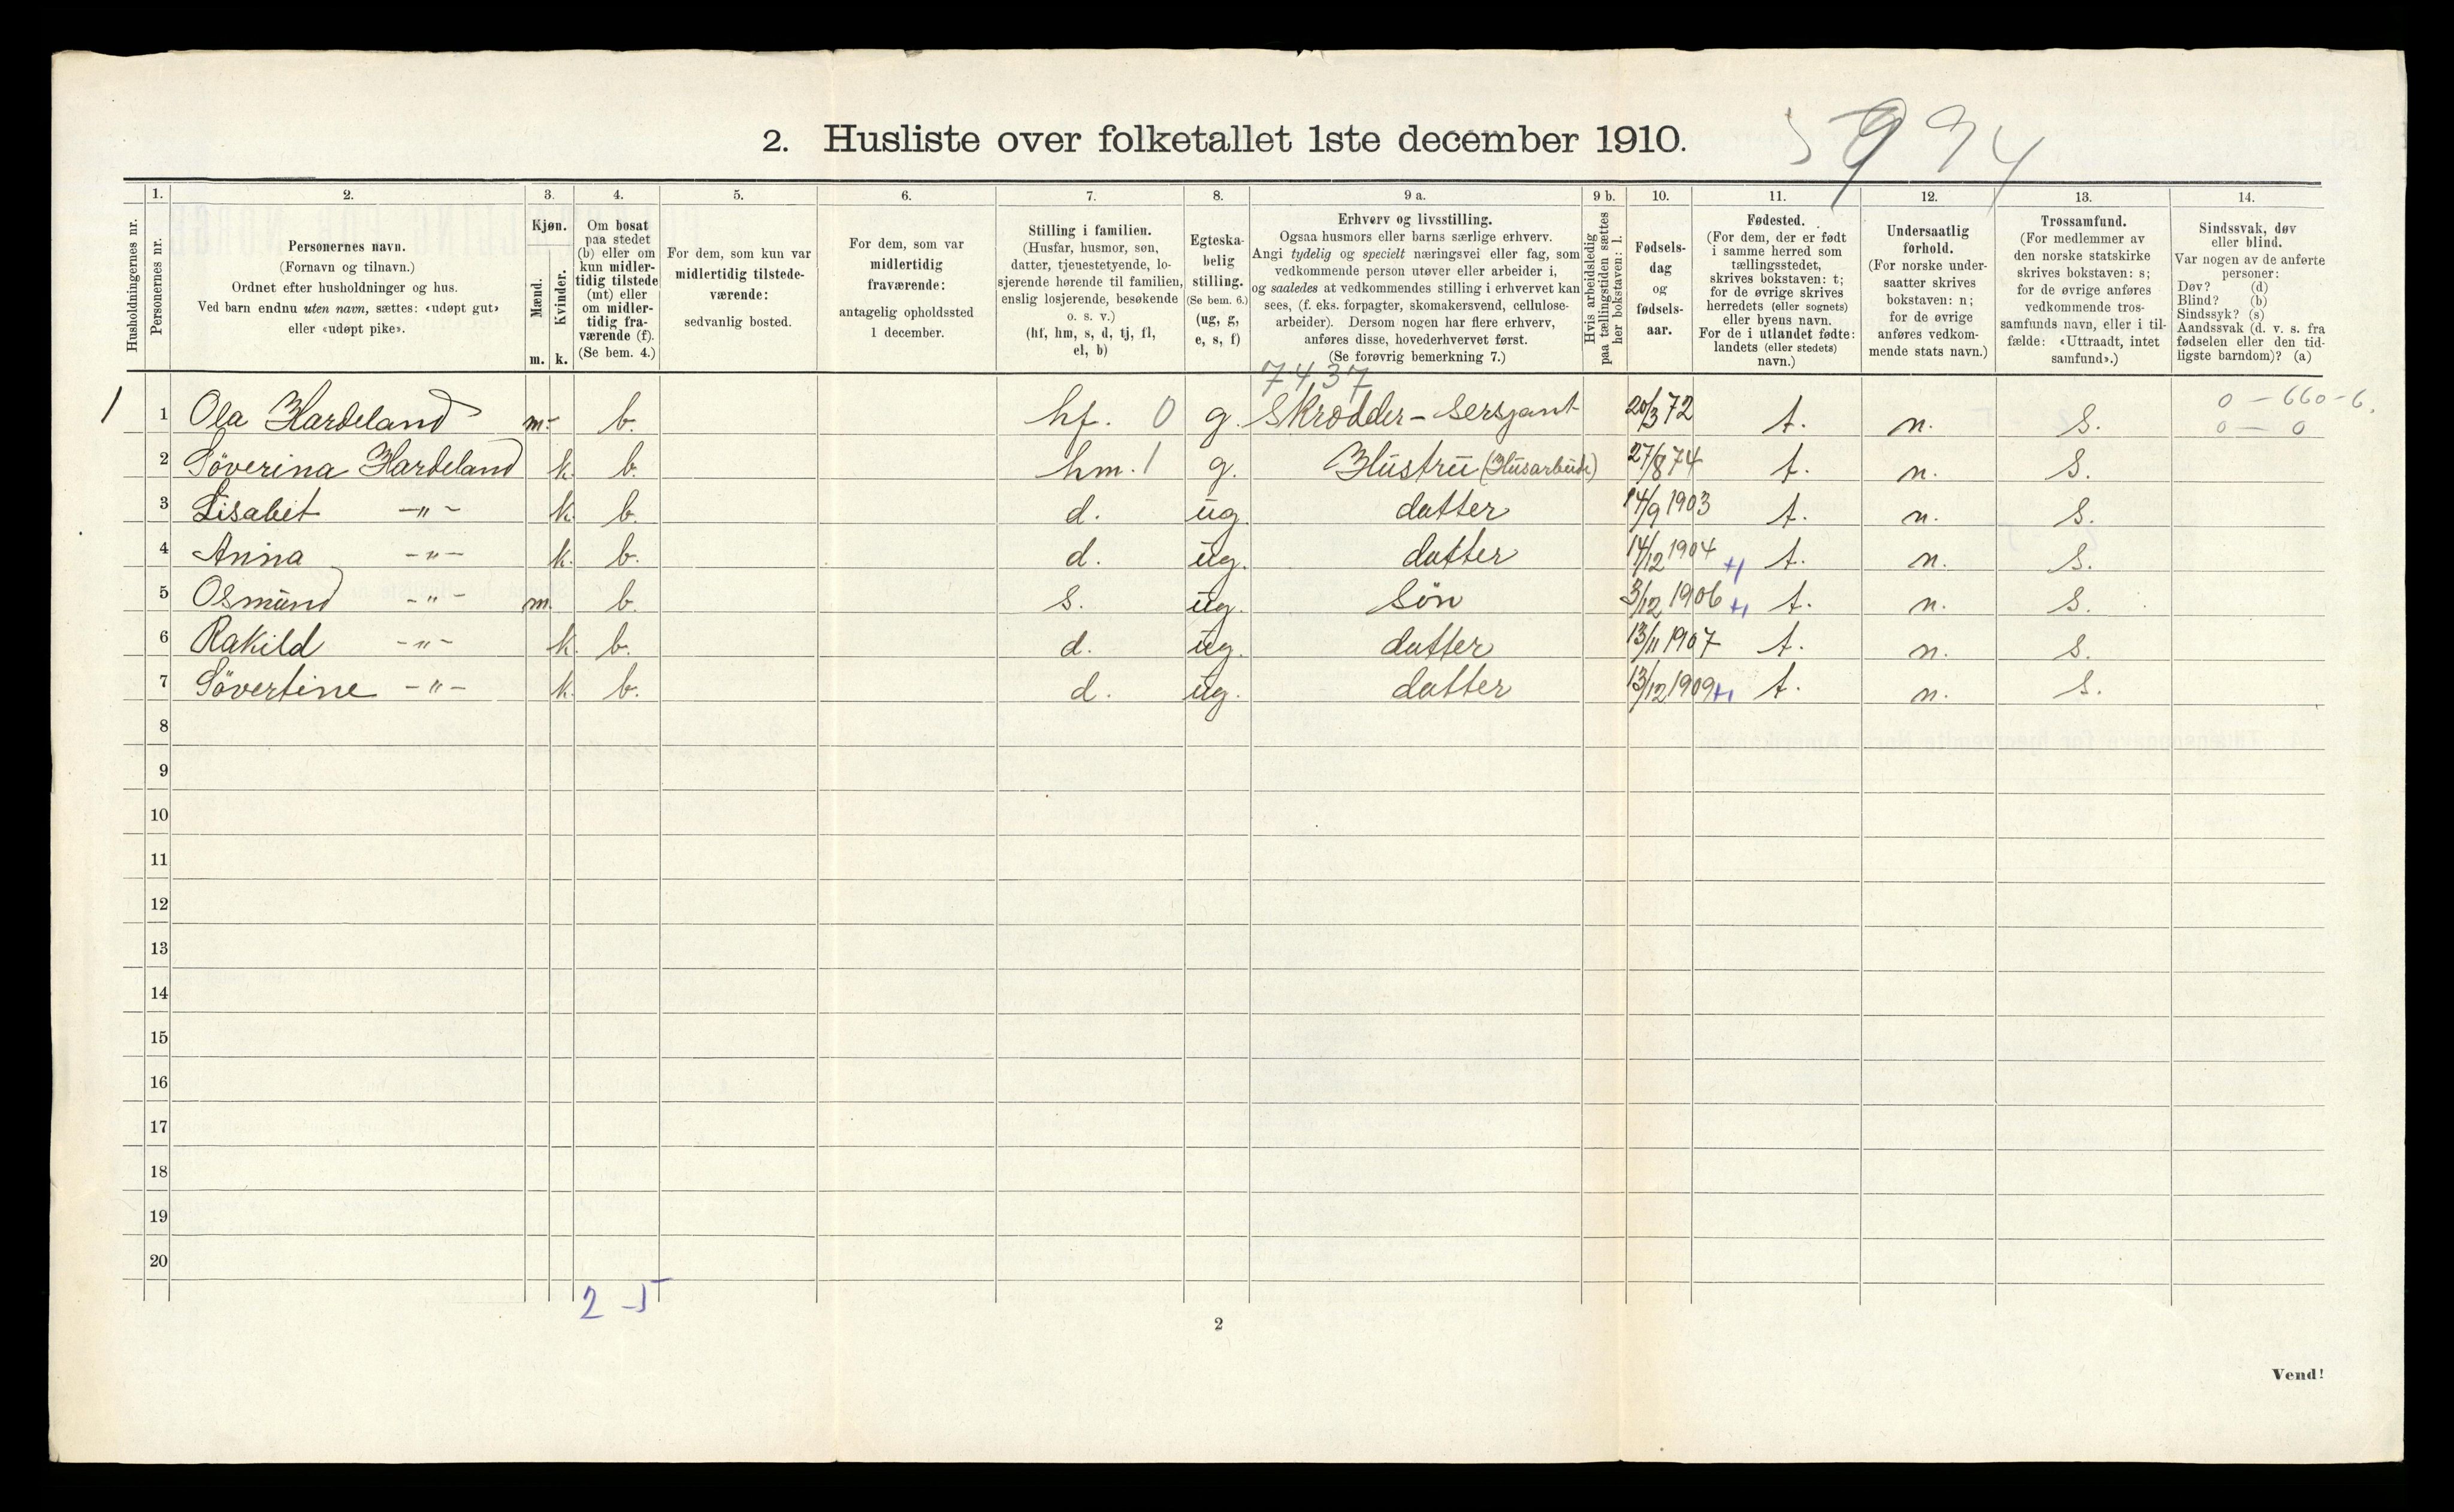 2. Husliste over folketallet 1ste december 1910.
Husholdningernes nr.
1.
Personernes nr.
2.
Personernes navn.
(Fornavn og tilnavn.)
Ordnet efter husholdninger og hus.
Ved barn endnu uten navn, sættes: «udøpt gut»
eller «udøpt pike».
3.
Kjøn.
Mænd.
Kvinder.
m. k.
4.
Om bosat
paa stedet
(b) eller om
kun midler-
tidig tilstede
(mt) eller
om midler-
tidig fra-
værende (f).
(Se bem. 4.)
5.
For dem, som kun var
midlertidig tilstede-
værende:
sedvanlig bosted.
6.
For dem, som var
midlertidig
fraværende:
antagelig opholdssted
1 december.
7.
Stilling i familien.
(Husfar, husmor, søn,
datter, tjenestetyende, lo-
sjerende hørende til familien,
enslig losjerende, besøkende
o. s. v.)
(hf, hm, s, d, tj, fl,
el, b)
8.
Egteska-
belig
stilling.
(Se bem. 6.)
(ug, g,
e, s, f)
9 a.
Erhverv og livsstilling.
Ogsaa husmors eller barns særlige erhverv.
Angi tydelig og specielt næringsvei eller fag, som
vedkommende person utøver eller arbeider i,
og saaledes at vedkommendes stilling i erhvervet kan
sees, (f. eks. forpagter, skomakersvend, cellulose-
arbeider). Dersom nogen har flere erhverv,
anføres disse, hovederhvervet først.
(Se forøvrig bemerkning 7.)
9 b.
Hvis arbeidsledig
paa tællingstiden sættes
her bokstaven: l.
10.
Fødsels-
dag
og
fødsels-
aar.
11.
Fødested.
(For dem, der er født
i samme herred som
tællingsstedet,
skrives bokstaven: t;
for de øvrige skrives
herredets (eller sognets)
eller byens navn.
For de i utlandet fødte:
landets (eller stedets)
navn.)
12.
Undersaatlig
forhold.
(For norske under-
saatter skrives
bokstaven: n;
for de øvrige
anføres vedkom-
mende stats navn.)
13.
Trossamfund.
(For medlemmer av
den norske statskirke
skrives bokstaven: s;
for de øvrige anføres
vedkommende tros-
samfunds navn, eller i til-
fælde: «Uttraadt, intet
samfund».)
14.
Sindssvak, døv
eller blind.
Var nogen av de anførte
personer:
Døv? (d)
Blind? (b)
Sindssyk? (s)
Aandssvak (d. v. s. fra
fødselen eller den tid-
ligste barndom)? (a)
7437
1 1 Ola Hardeland m. b. hf. 0 g. Skrodder - Sersjant 20/3 72 t. n. S. 0 - 660-6.
0 - 0
2 Söverina Hardeland k. b. hm. 1 g. Hustru (Husarbeide) 27/8 74 t. n. S.
3 Lisabet -"- k. b. d. ug. datter 14/9 1903 t. n. S.
4 Anna -"- k. b. d. ug. datter 14/12 1904 +1 t. n. S.
5 Osmund -"- m. b. s. ug. Sön 3/12 1906 +1 t. n. S.
6 Rakild -"- k. b. d. ug. datter 13/11 1907 t. n. S.
7 Sövertine -"- k. b. d. ug. datter 13/12 1909 +1 t. n. S.
8
9
10
11
12
13
14
15
16
17
18
19
20
2 - 5
2
Vend!